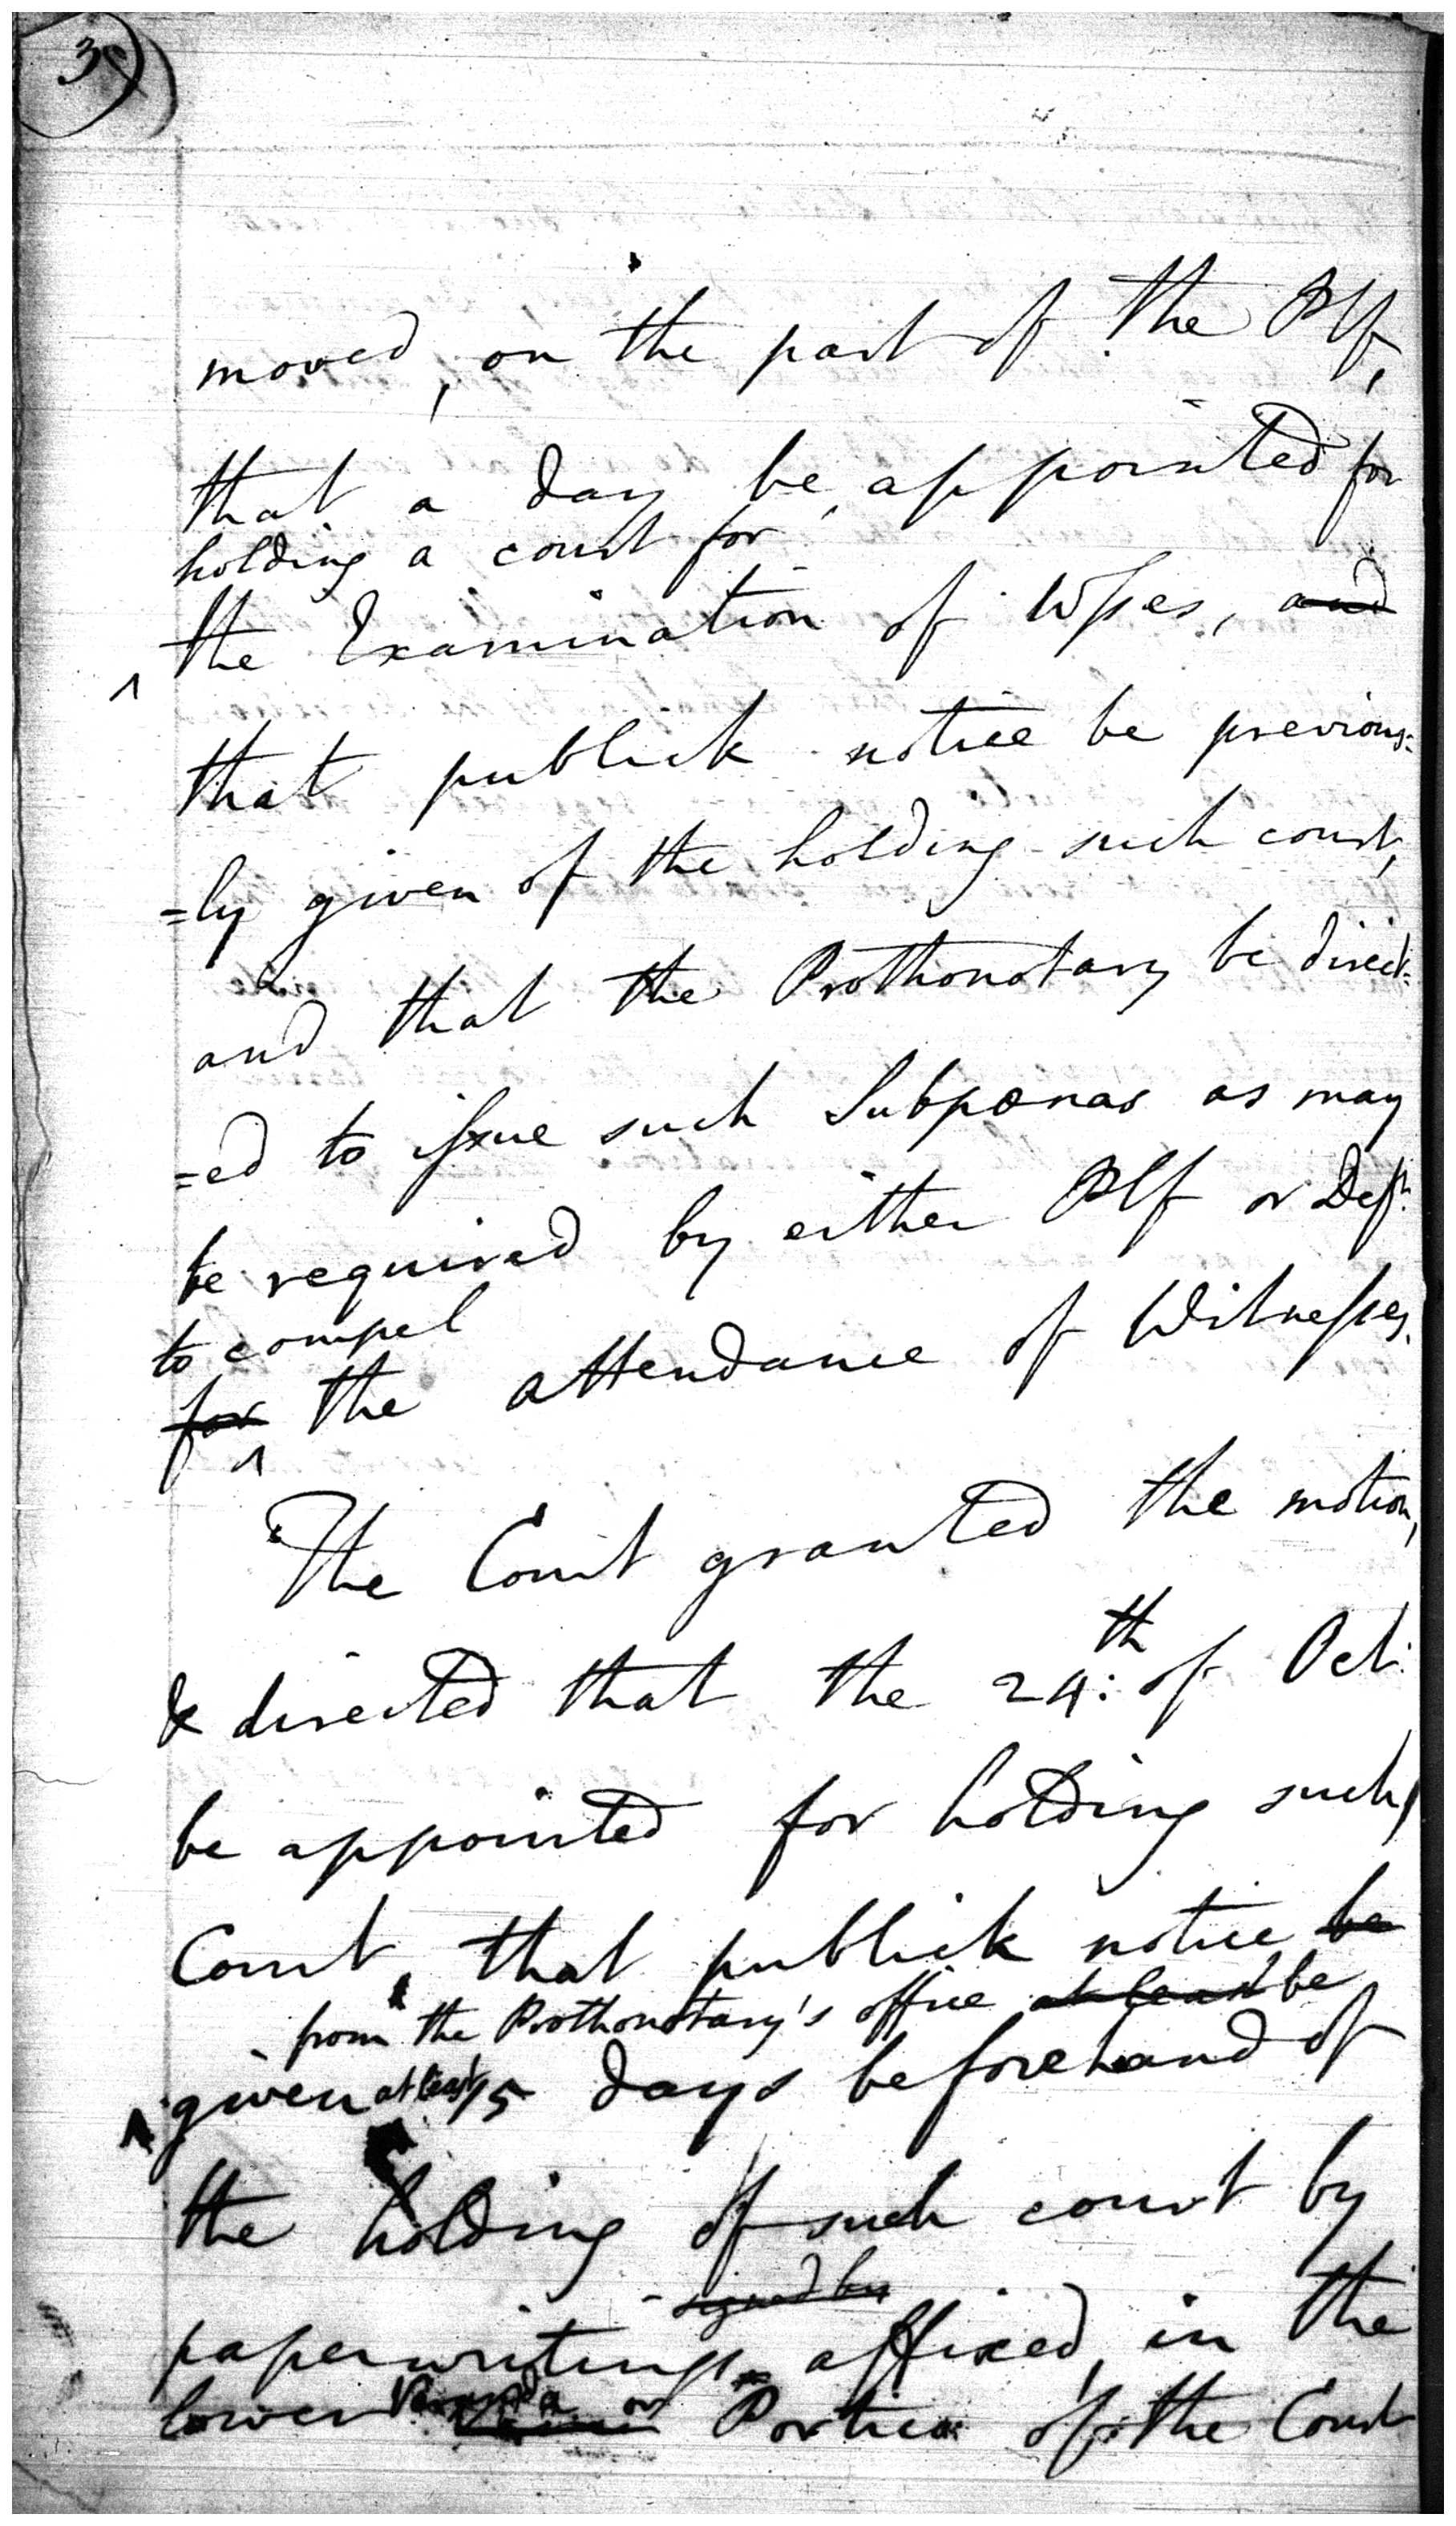 3
moved, on the part of the Plf,
that a day be appointed for
holding a court for
the Examination of Wſses, and
that publick notice be previous=
=ly given of the holding such court,
and that the Prothonotary be direct=
=ed to iſsue such Subpœnas as may
be required by either Plf or Deft
to compel
for the attendance of Witneſses.
The Court granted the motion,
& directed that the 24:th of Oct:
be appointed for holding such
Court, that publick notice be
from the Prothonotary's office at least be
given at least 15 days beforehand of
the holding of such court by
signed by
paperwritings affixed, in the
lower Veranda or Portico of the Court